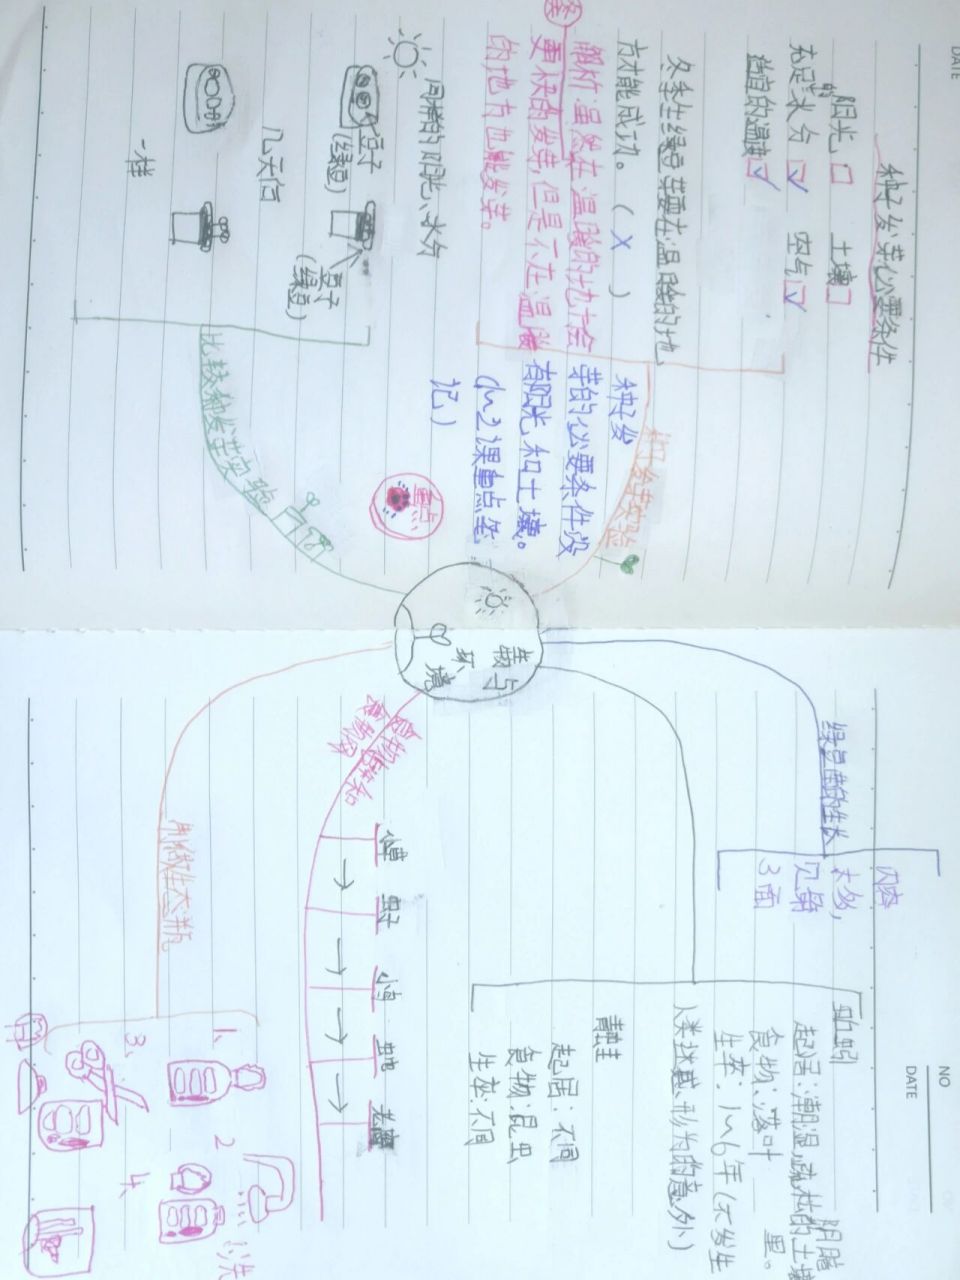 DATE
种子发芽必要条件
阳光 □ 土壤 □
充足的水分 ☑ 空气 ☑
适宜的温度 ☑
冬季生绿豆芽要在温暖的地
方才能成功。( X )
解析:虽然在温暖的地方会
更快的发芽,但是不在温暖
的地方也能发芽。
种子发
芽的必要条件没
有阳光和土壤。
(1~2课重点笔
记)
种子发芽实验
重点
同样的阳光、水分
豆子
(绿豆)
豆子
(绿豆)
几天后
一样
比较种子发芽实验
生物与
环境
NO
DATE
绿豆苗的生长
内容
太多,
见第
3面
蚯蚓
起居:潮湿,疏松的土壤
阴暗
食物:落叶
里。
生卒:1~6年(不发生
人类找惹,形为的意外)
青蛙
起居:不同
食物:昆虫
生卒:不同
食物链和
食物网
老鹰
制做生态瓶
1、
2
洗
3、
4、